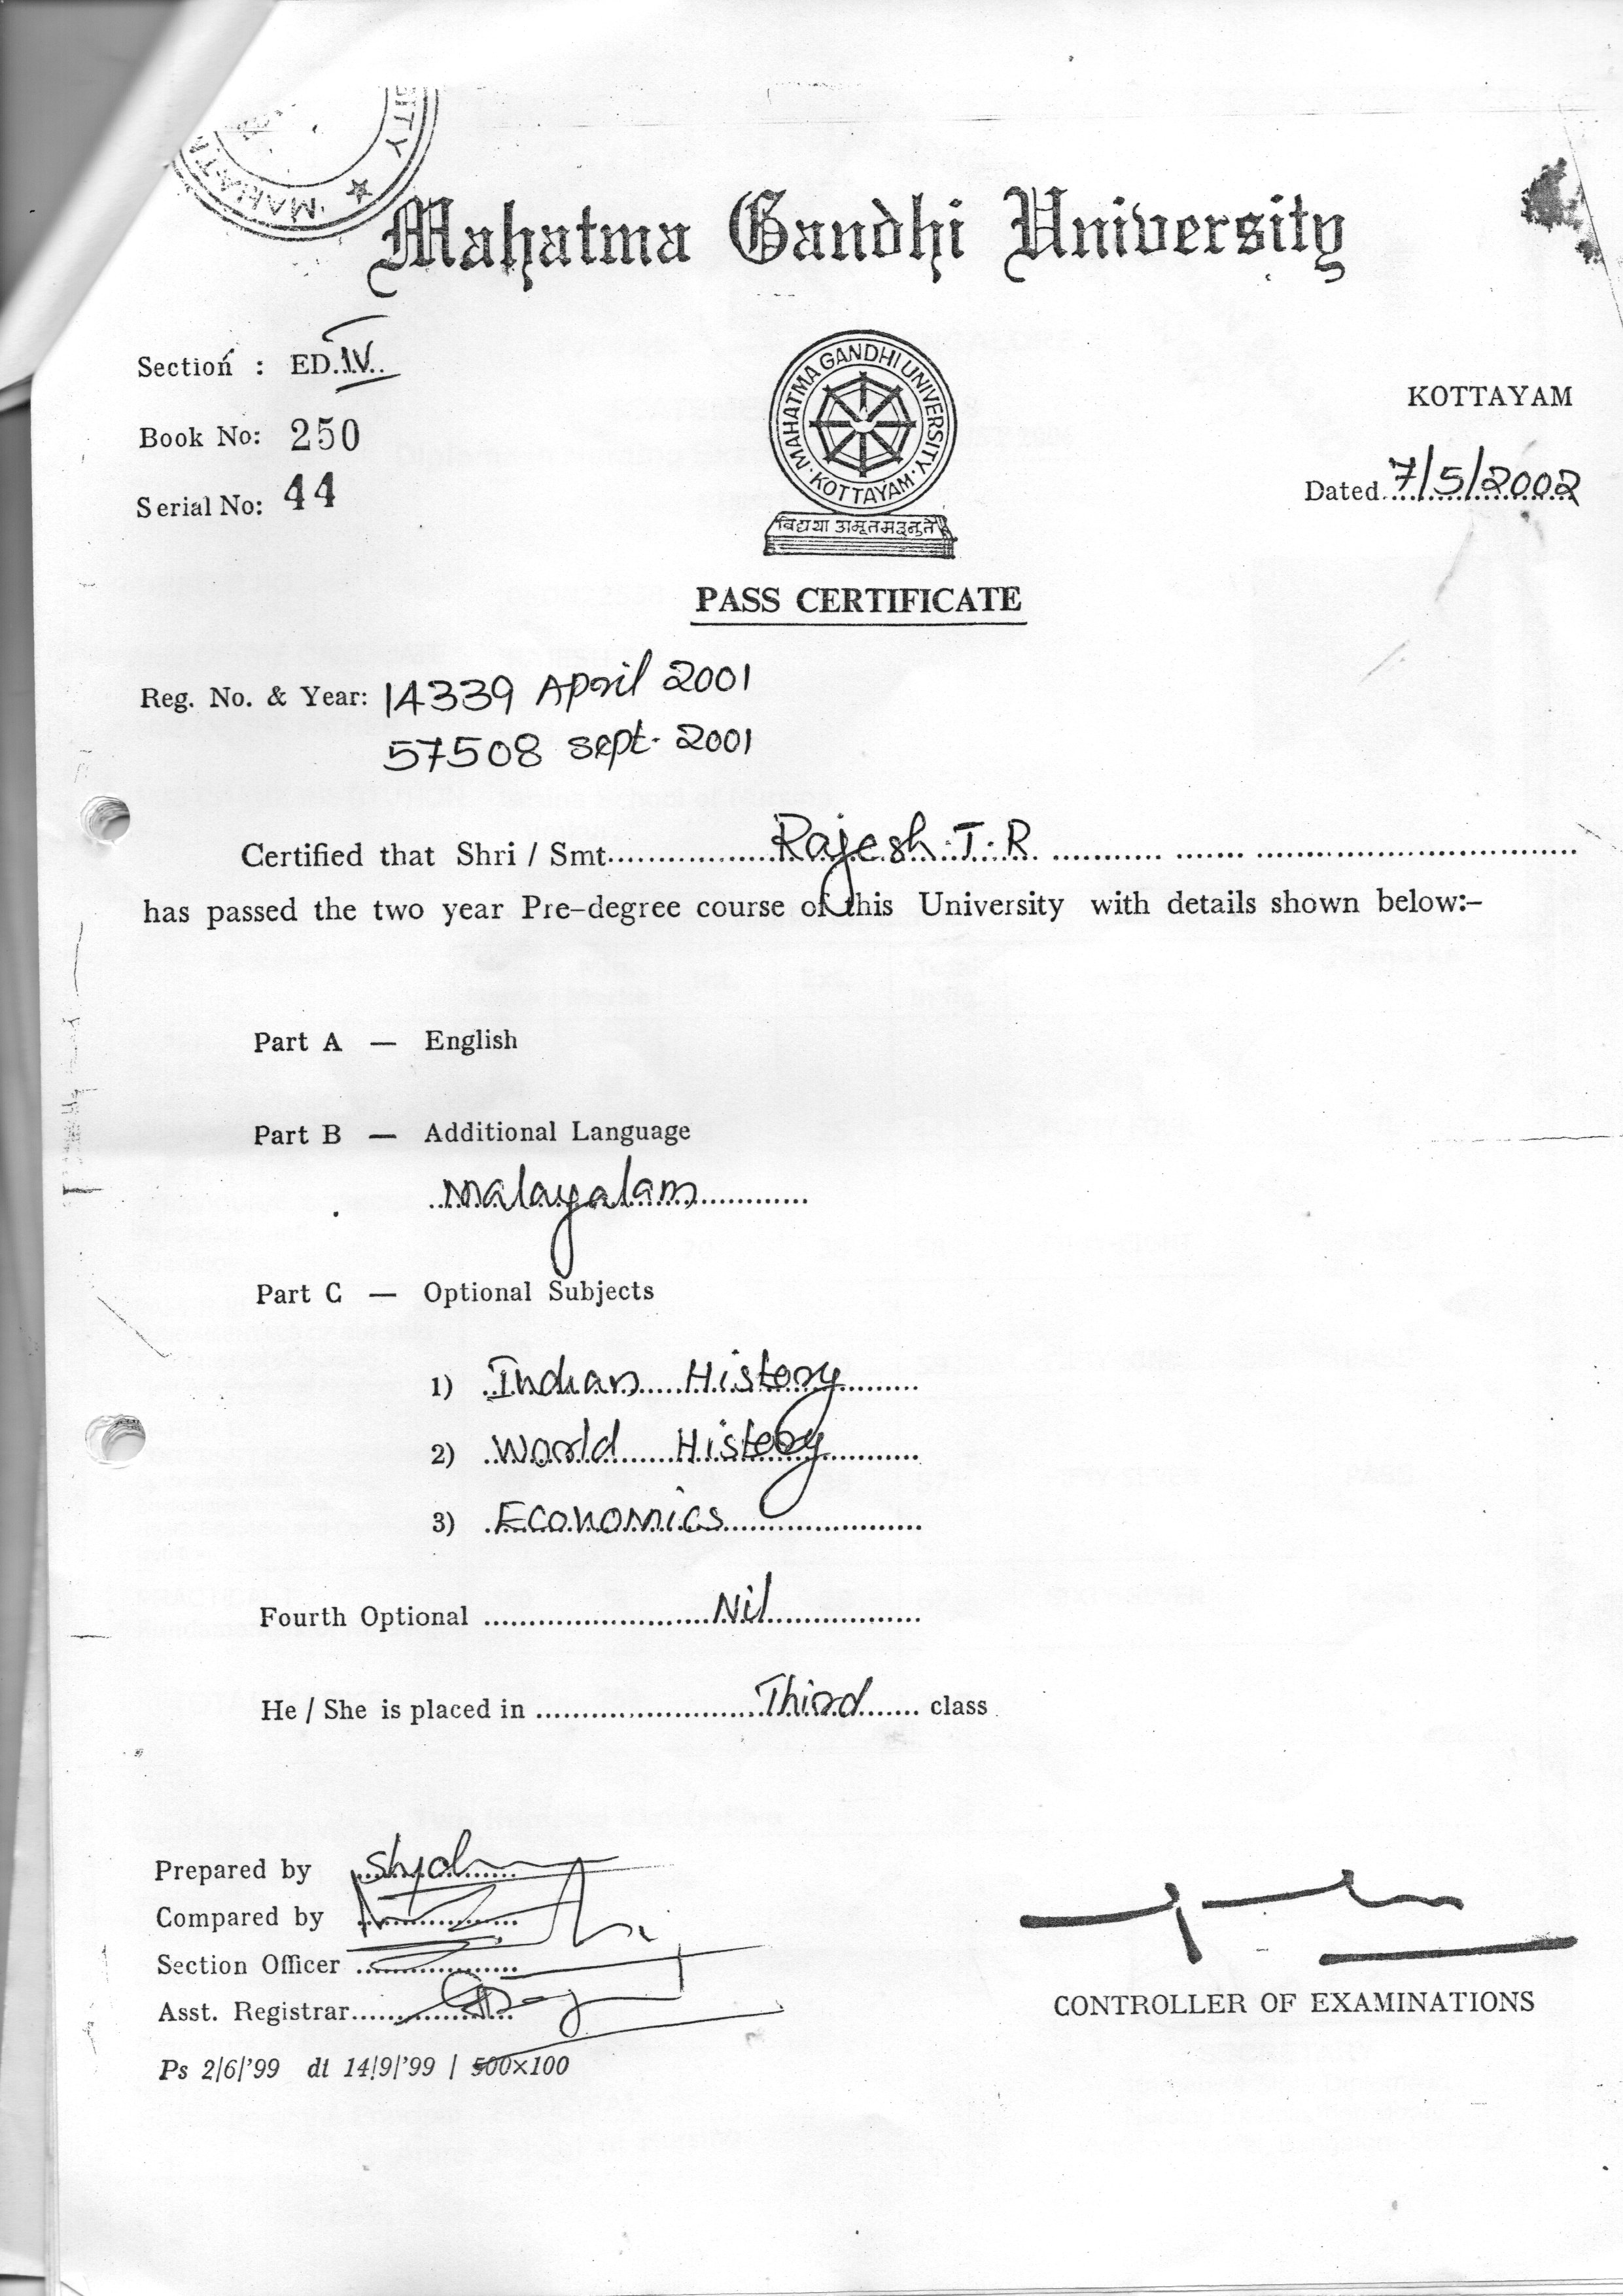 MAHATMA
SITY
Mahatma Gandhi University
Section : ED.IV.
Book No: 250
Serial No: 44
MAHATMA GANDHI UNIVERSITY
KOTTAYAM
विद्यया अमृतमश्नुते
KOTTAYAM
Dated 7/5/2002
PASS CERTIFICATE
Reg. No. & Year: 14339 April 2001
57508 sept. 2001
Certified that Shri / Smt. Rajesh. T. R
has passed the two year Pre-degree course of this University with details shown below:-
Part A — English
Part B — Additional Language
Malayalam
Part C — Optional Subjects
1) Indian History
2) World History
3) Economics
Fourth Optional Nil
He / She is placed in Third class
Prepared by
Compared by
Section Officer
Asst. Registrar
CONTROLLER OF EXAMINATIONS
Ps 2/6/'99 dt 14/9/'99 / 500×100